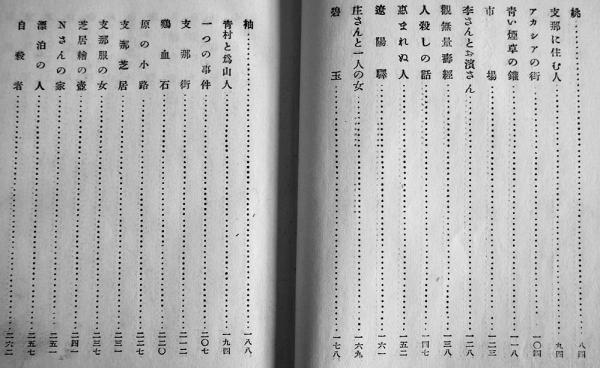 桃……………………八四
支那に住む人……………………九四
アカシアの街……………………一〇四
青い煙草の罐……………………一一八
市場……………………一二三
李さんとお濱さん……………………一二八
觀無量壽經……………………一三八
人殺しの話……………………一四七
惠まれぬ人……………………一五二
遼陽驛……………………一六一
庄さんと一人の女……………………一六九
碧玉……………………一七八
袖……………………一八八
青村と爲山人……………………一九四
一つの事件……………………二〇七
支那街……………………二一二
鷄血石……………………二二〇
原の小路……………………二二七
支那芝居……………………二三一
支那服の女……………………二三七
芝居繪の壺……………………二四一
Nさんの家……………………二五一
漂泊の人……………………二五七
自殺者……………………二六二